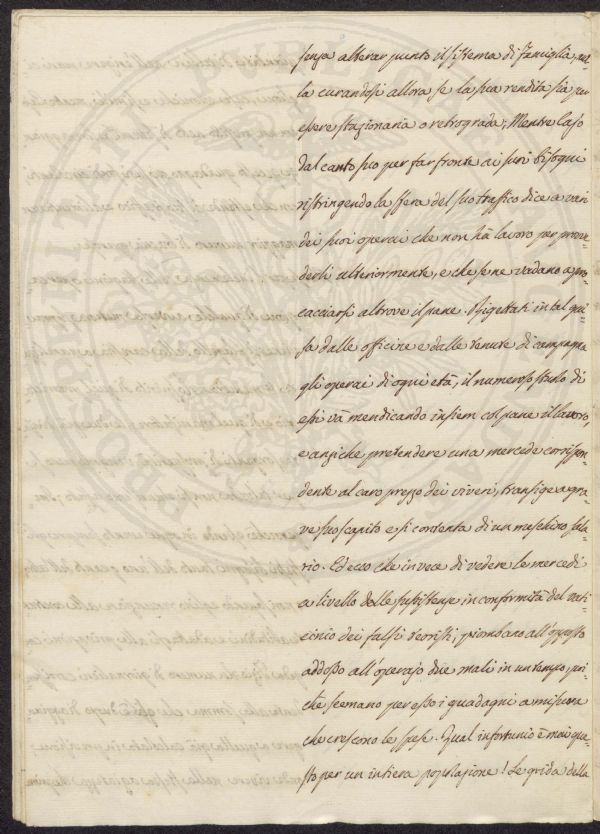 senza alterar punto il sistema di famiglia, nul-
la curandosi allora se la sua rendita sia per
essere stazionaria o retrograda; Mentre
dal canto suo per far fronte ai suoi bisogni
ristringendo la sfera del suo traffico dice a vari
dei suoi operai che non hà lavoro per prove-
derli ulteriormente, e che se ne vadano a pro-
cacciarsi altrove il pane. Rigettati in tal gui-
sa dalle officine e dalle tenute di campagna
gli operai di ogni età, il numeroso stuolo di
essi và mendicando insiem col pane il lavoro,
e anziche pretendere una mercede corrispon-
dente al caro prezzo dei viveri, transige a gra-
ve suo scapito e si contenta di un meschino sala-
rio. Ed ecco che invece di vedere le mercedi
a livello delle sussistenze in conformità del vati-
cinio dei falsi teoristi, piombano all'opposto
addosso all'operajo due mali in un tempo, poi-
chè scemano per essi i guadagni a misura
che crescono le spese. Qual infortunio è mai que-
sto per un intiera popolazione! Le grida della